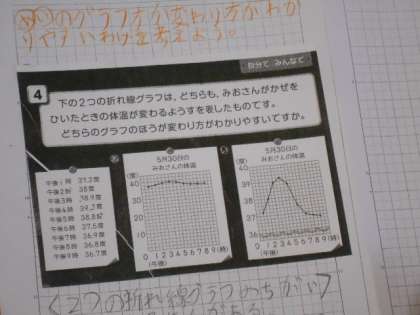 のグラフ方が変わり方がわか
りやすいわけを考えよう。
自分で みんなで
4
下の2つの折れ線グラフは、どちらも、みおさんがかぜを
ひいたときの体温が変わるようすを表したものです。
どちらのグラフのほうが変わり方がわかりやすいですか。
午後1時 37.3度
午後2時 38度
午後3時 38.9度
午後4時 39.3度
午後5時 38.8度
午後6時 37.5度
午後7時 36.9度
午後8時 36.8度
午後9時 36.7度
あ
5月30日の
みおさんの体温
(度)
40
30
20
10
0 1 2 3 4 5 6 7 8 9 (時)
(午後)
い
5月30日の
みおさんの体温
(度)
40
39
38
37
36
0 1 2 3 4 5 6 7 8 9 (時)
(午後)
〈2つの折れ線グラフのちがい〉